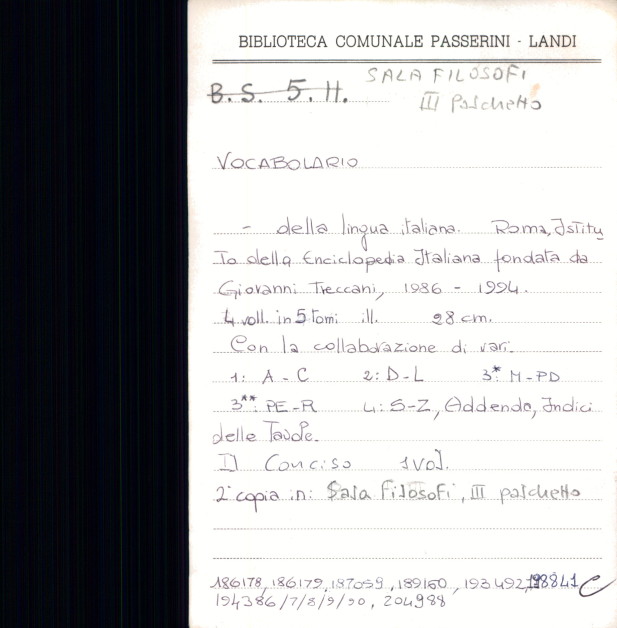 BIBLIOTECA COMUNALE PASSERINI - LANDI
B. S. 5. H. SALA FILOSOFI
III Palchetto
VOCABOLARIO
- della lingua italiana. Roma, Istitu
To della Enciclopedia Italiana fondata da
Giovanni Treccani, 1986 - 1994.
4 voll. in 5 tomi ill. 28 cm.
Con la collaborazione di vari.
1: A - C 2: D - L 3*: M - PD
3**: PE - R 4: S-Z, Addenda, Indici
delle Tavole.
Il Conciso 1 vol.
2ª copia in: Sala Filosofi, III palchetto
186178, 186179, 187059, 189160, 193492, 198841
194386/7/8/9/90, 204988